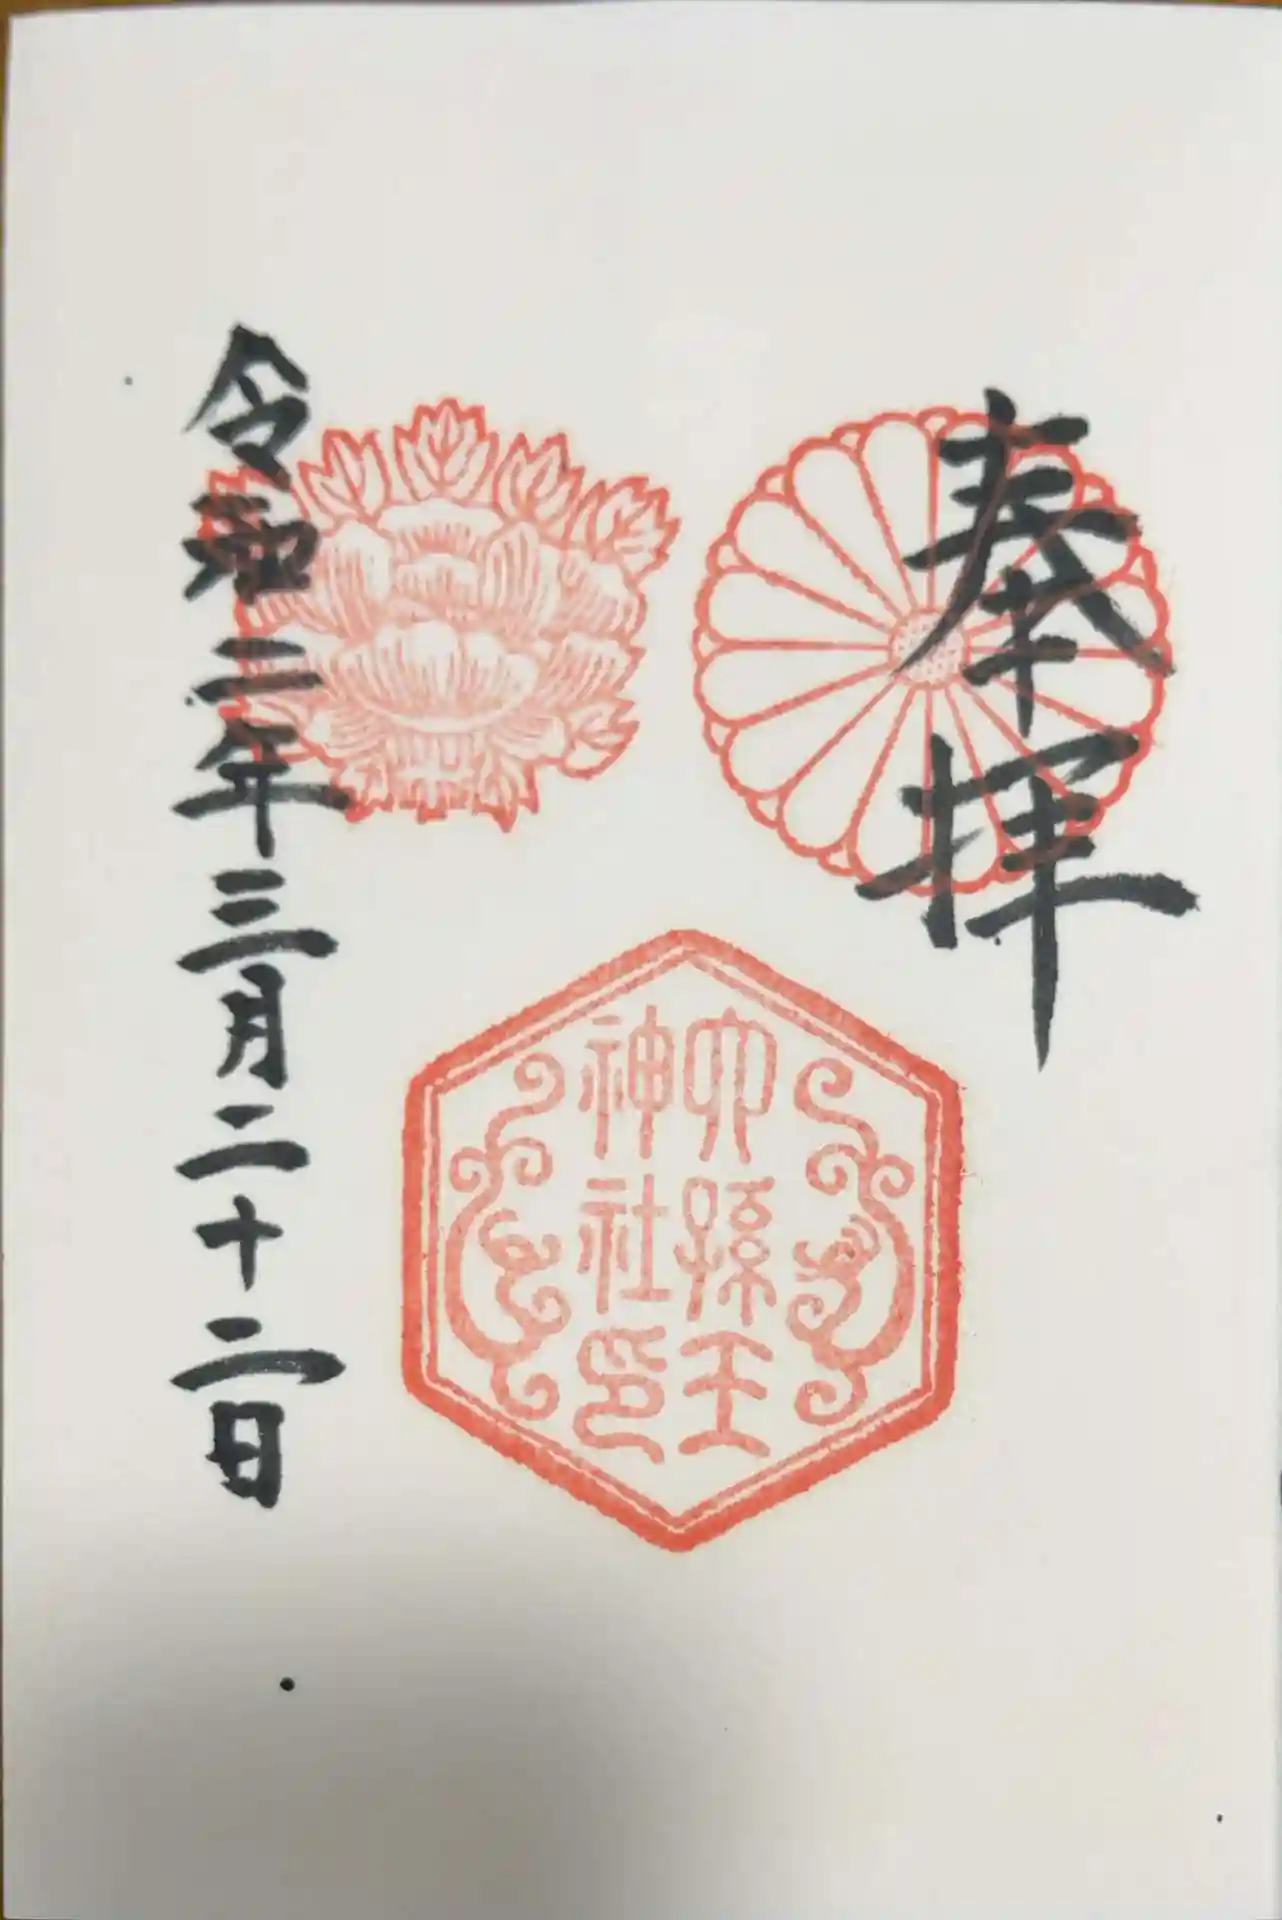 奉拝
六孫王
神社印
令和二年三月二十二日